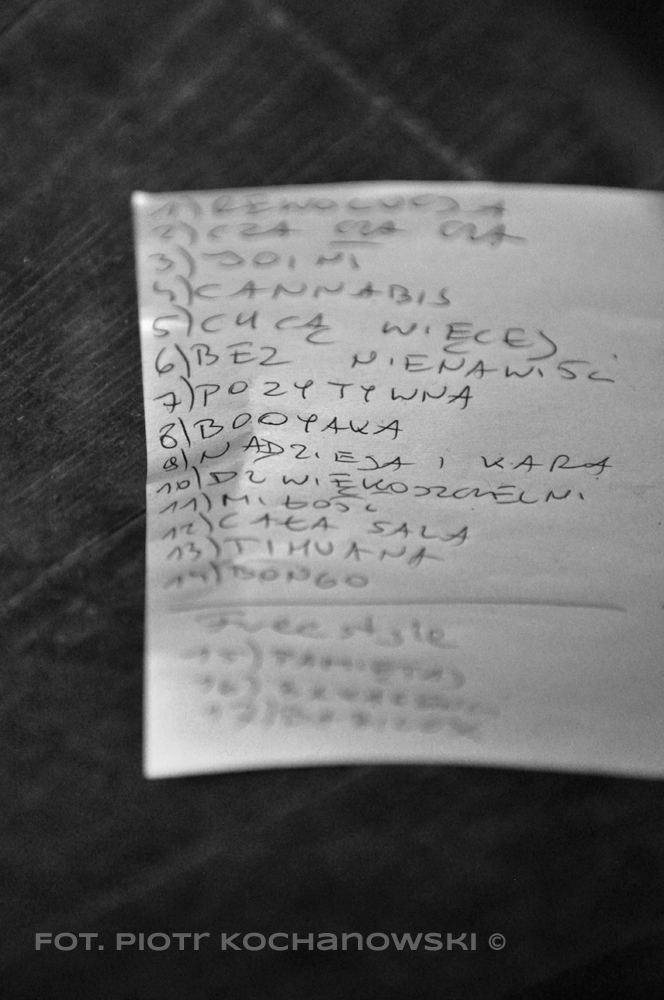 1) REWOLUCJA
2) CZA CZA CZA
3) JOINI
5) CANNABIS
5) CHCĄ WIĘCEJ
6) BEZ NIENAWIŚCI
7) POZYTYWNA
8) BOOYAKA
9) NADZIEJA I KARA
10) DŹWIĘKOSZCZELNI
11) MIŁOŚĆ
12) CAŁA SALA
13) TIHUANA
14) BONGO
Free style
15) PAMIĘTAJ
16)
17)
FOT. PIOTR KOCHANOWSKI ©